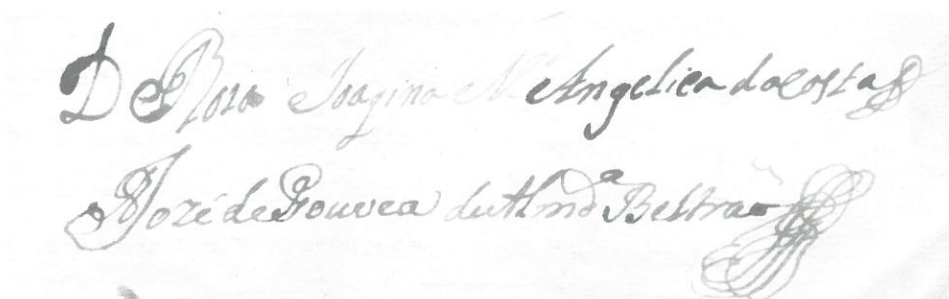 D Roza Joaqina M Angelica da Costa
José de Gouvea de Almda Beltrao